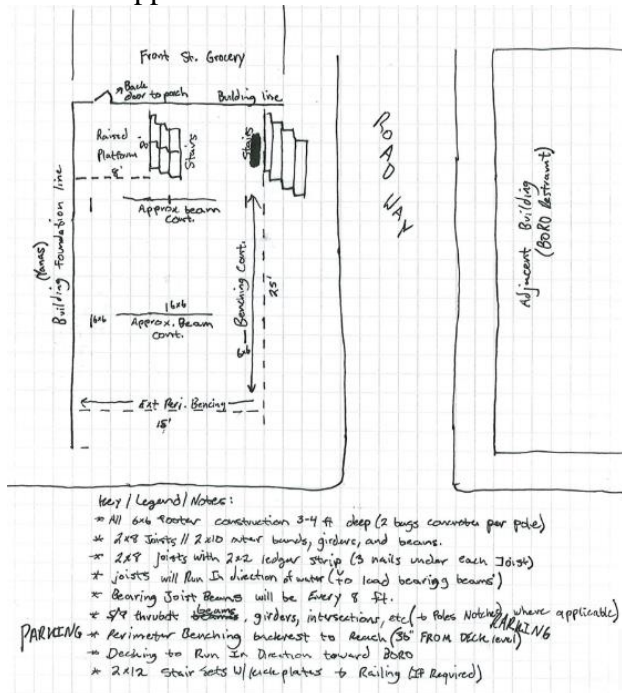 Front St. Grocery
Back
door to porch
Building line
Raised
Platform
8'
Stairs
Stairs
ROAD WAY
Approx beam
cont.
(Yanas)
Building Foundation line
Benching Cont.
25'
6x6
6x6
6x6
Approx. Beam
cont.
Ext Peri. Bencing
15'
Adjacent Building
(BORO Restraunt)
Key / Legend / Notes:
* All 6x6 footer construction 3-4 ft deep (2 bags concrete per pole)
* 2x8 Joists // 2x10 outer bands, girders, and beams.
* 2x8 joists with 2x2 ledger strip (3 nails under each Joist)
* joists will Run In direction of water (to load bearing beams)
* Bearing Joist Beams will be Every 8 ft.
* 5/8 thrubolt beams, girders, intersections, etc (to Poles Notched, where applicable)
PARKING
PARKING
* Perimeter Benching backrest to Reach (36" FROM DECK level)
* Decking to Run In Direction toward BORO
* 2x12 Stair Sets W/ kick plates & Railing (IF Required)